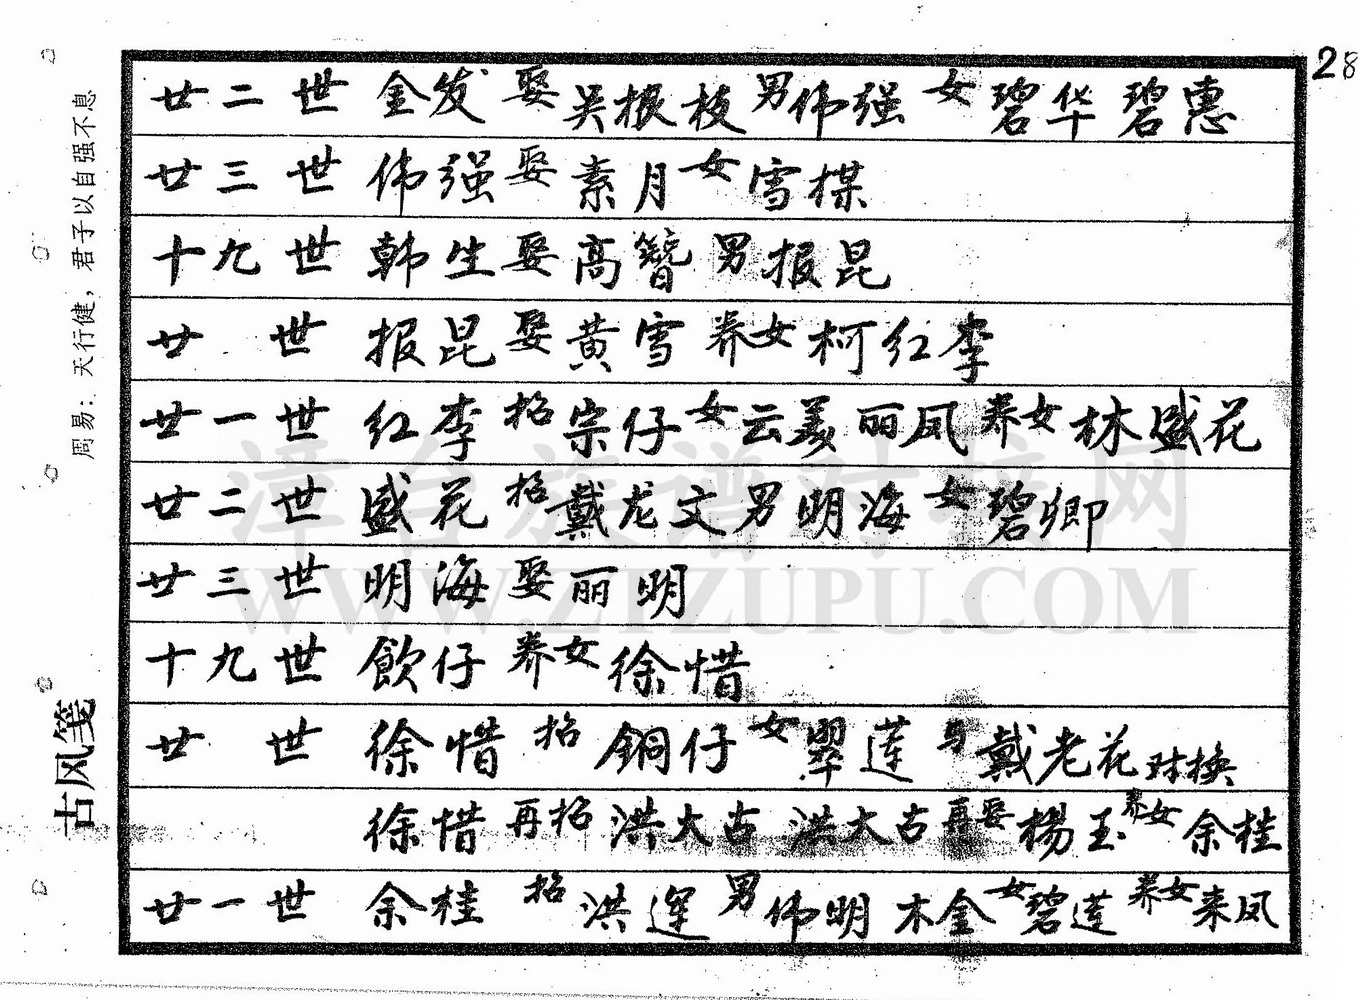 28
廿二世 金发 娶 吴根枝 男 伟强 女 碧华 碧惠
廿三世 伟强 娶 素月 女 雪楳
十九世 韩生 娶 高簪 男 报昆
廿 世 报昆 娶 黄雪 养女 柯红李
廿一世 红李 招 宗仔 女 云美 丽凤 养女 林盛花
廿二世 盛花 招 戴龙文 男 明海 女 碧卿
廿三世 明海 娶 丽明
十九世 飲仔 养女 徐惜
廿 世 徐惜 招 銅仔 女 翠莲 与 戴老花对换
徐惜 再招 洪大古 洪大古 再娶 楊玉 养女 余桂
廿一世 余桂 招 洪 男 伟明 木金 女 碧莲 养女 来凤
周易：天行健，君子以自强不息
古风笺
漳台族谱对接网
WWW.ZIZUPU.COM